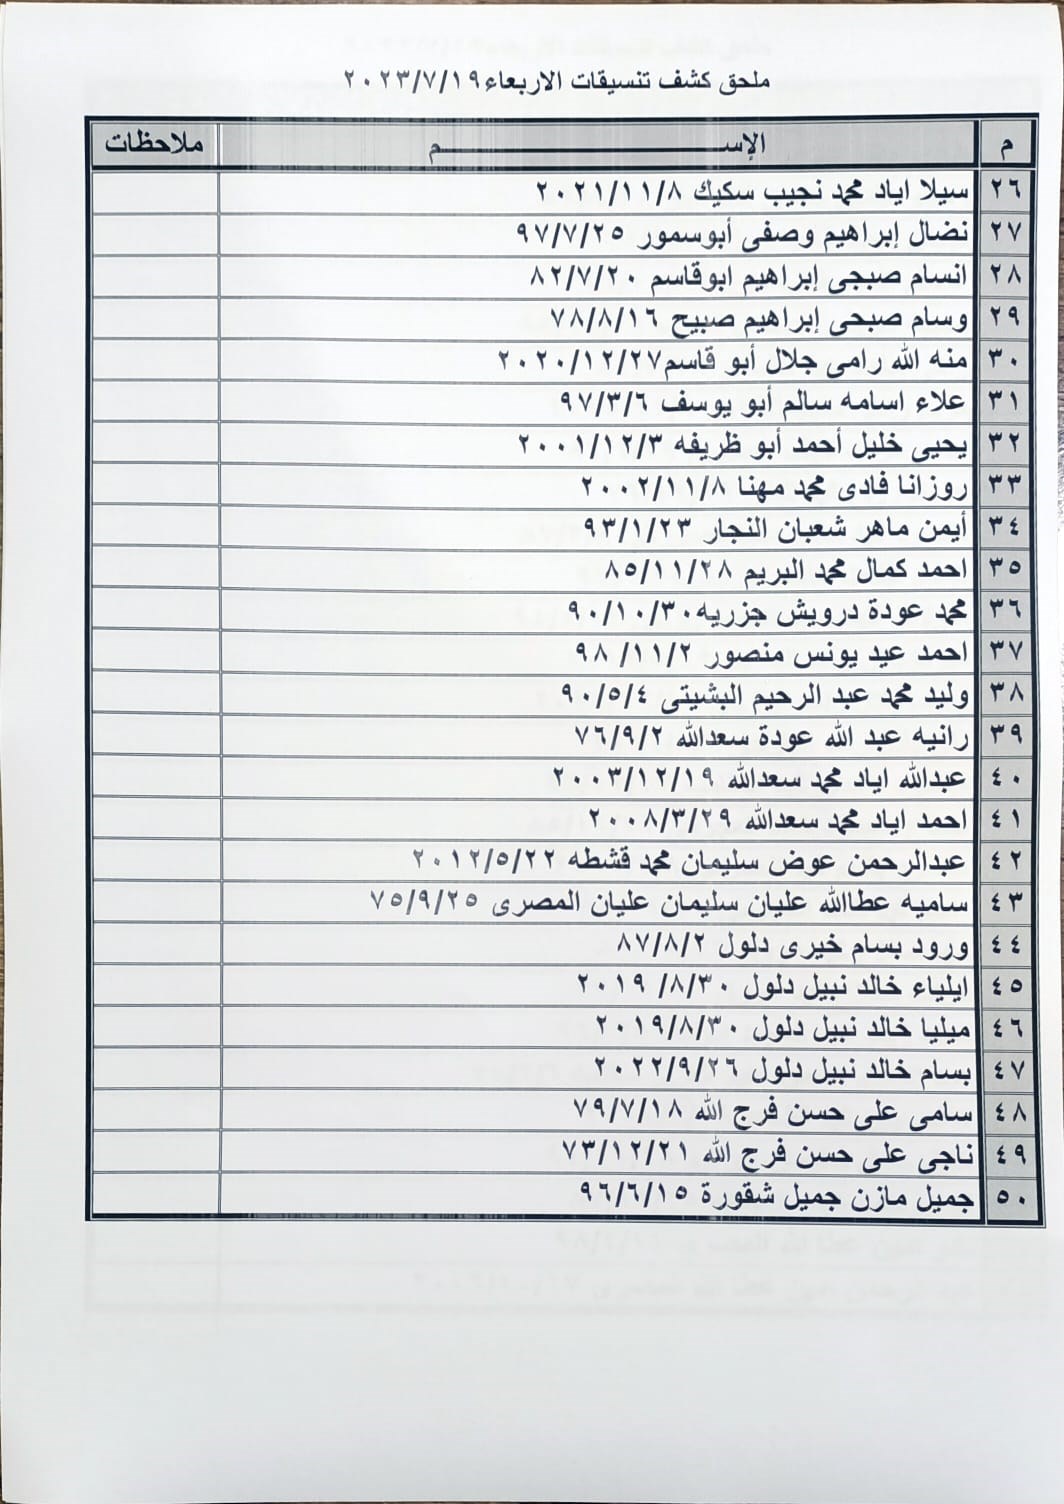 ملحق كشف تنسيقات الاربعاء ٢٠٢٣/٧/١٩
م الإســـــــم ملاحظات
٢٦ سيلا اياد محمد نجيب سكيك ٢٠٢١/١١/٨
٢٧ نضال إبراهيم وصفى أبوسمور ٩٧/٧/٢٥
٢٨ انسام صبجى إبراهيم ابوقاسم ٨٢/٧/٢٠
٢٩ وسام صبحى إبراهيم صبيح ٧٨/٨/١٦
٣٠ منه الله رامى جلال أبو قاسم ٢٠٢٠/١٢/٢٧
٣١ علاء اسامه سالم أبو يوسف ٩٧/٣/٦
٣٢ يحيى خليل أحمد أبو ظريفه ٢٠٠١/١٢/٣
٣٣ روزانا فادى محمد مهنا ٢٠٠٢/١١/٨
٣٤ أيمن ماهر شعبان النجار ٩٣/١/٢٣
٣٥ احمد كمال محمد البريم ٨٥/١١/٢٨
٣٦ محمد عودة درويش جزريه ٩٠/١٠/٣٠
٣٧ احمد عيد يونس منصور ٩٨/١١/٢
٣٨ وليد محمد عبد الرحيم البشيتى ٩٠/٥/٤
٣٩ رانيه عبد الله عودة سعدالله ٧٦/٩/٢
٤٠ عبدالله اياد محمد سعدالله ٢٠٠٣/١٢/١٩
٤١ احمد اياد محمد سعدالله ٢٠٠٨/٣/٢٩
٤٢ عبدالرحمن عوض سليمان محمد قشطه ٢٠١٢/٥/٢٢
٤٣ ساميه عطاالله عليان سليمان عليان المصرى ٧٥/٩/٢٥
٤٤ ورود بسام خيرى دلول ٨٧/٨/٢
٤٥ ايلياء خالد نبيل دلول ٢٠١٩/٨/٣٠
٤٦ ميليا خالد نبيل دلول ٢٠١٩/٨/٣٠
٤٧ بسام خالد نبيل دلول ٢٠٢٢/٩/٢٦
٤٨ سامى على حسن فرج الله ٧٩/٧/١٨
٤٩ ناجى على حسن فرج الله ٧٣/١٢/٢١
٥٠ جميل مازن جميل شقورة ٩٦/٦/١٥